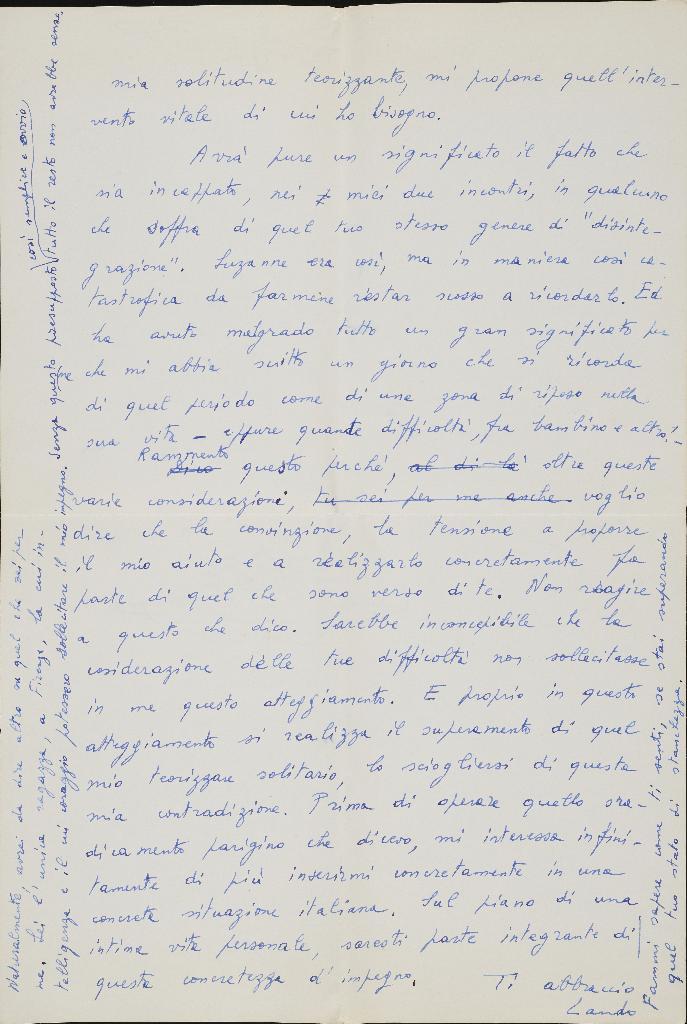 mia solitudine teorizzante, mi propone quell'inter-
vento vitale di cui ho bisogno.
Avrà pure un significato il fatto che
sia incappato, nei miei due incontri, in qualcuno
che soffra di quel tuo stesso genere di "disinte-
grazione". Suzanne era così, ma in maniera così ca-
tastrofica da farmene restar scosso a ricordarlo. Ed
ha avuto malgrado tutto un gran significato per
me che mi abbia scritto un giorno che si ricorda
di quel periodo come di una zona di riposo nella
sua vita – eppure quante difficoltà, fra bambino e altro!–
Rammento questo perché, al di là oltre queste
varie considerazioni, tu sei per me anche voglio
dire che la convinzione, la tensione a proporre
il mio aiuto e a realizzarlo concretamente fa
parte di quel che sono verso di te. Non reagire
a questo che dico. Sarebbe inconcepibile che la
cosiderazione delle tue difficoltà non sollecitasse
in me questo atteggiamento. E proprio in questo
atteggiamento si realizza il superamento di quel
mio teorizzare solitario, lo sciogliersi di questa
mia contradizione. Prima di operare quello sra-
dicamento parigino che dicevo, mi interessa infini-
tamente di più inserirmi concretamente in una
concreta situazione italiana. Sul piano di una
intima vita personale, saresti parte integrante di
questa concretezza d'impegno.
Ti abbraccio
Lando
Fammi sapere come ti senti, se stai superando
quel tuo stato di stanchezza.
Naturalmente, avrei da dire altro su quel che sei per
me. Sei l'unica ragazza, a Firenze, la cui in-
telligenza e il cui coraggio potessero sollecitare il mio impegno. Senza questo presupposto tutto il resto non avrebbe senso.
così semplice e ovvio,